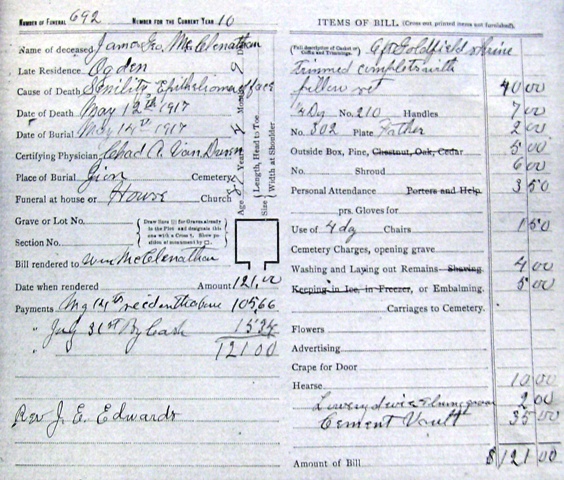 NUMBER OF FUNERAL 692 NUMBER FOR THE CURRENT YEAR 10
Name of deceased James Geo. McClenathan
Late Residence Ogden
Cause of Death Senility, Epithelioma of face
Date of Death May 12th 1917
Date of Burial May 14th 1917
Certifying Physician Chad A. Van Duzen
Place of Burial Zion Cemetery
Funeral at house or House Church
Age Years Months Days
Size { Length, Head to Toe
Width at Shoulder
Grave or Lot No.
Section No.
{ Draw lines for Graves already in the Plot and designate this one with a Cross †. Show position of monument by □. }
Bill rendered to Wm McClenathan
Date when rendered Amount 121.00
Payments 105.66
" July 31st By Cash 15.34
" 121 00
Rev J. E. Edwards
ITEMS OF BILL. (Cross out printed items not furnished).
(Full description of Casket or Coffin and Trimmings. 6ft Goldfield shrine
trimmed complete with
pillow set 40 00
4 Dg No. 210 Handles 7 00
No. 302 Plate Father 2 00
Outside Box, Pine, Chestnut, Oak, Cedar 5 00
No. Shroud 6 00
Personal Attendance Porters and Help 3 50
prs. Gloves for
Use of 4 dg Chairs 1 50
Cemetery Charges, opening grave
Washing and Laying out Remains Shaving 4 00
Keeping in Ice, in Freezer, or Embalming. 5 00
Carriages to Cemetery.
Flowers
Advertising
Crape for Door
Hearse 10 00
Lowery device 2 00
Cement Vault 35 00
Amount of Bill $121 00